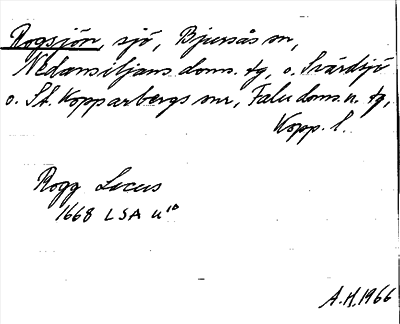 Rogsjön, sjö, Bjursås sn,
Nedansiljans doms. tg, o. Svärdsjö
o. St. Kopparbergs snr, Falu doms. tg,
Kopp. l.
Rogg Lacus
1668 LSA u¹⁰
A.H. 1966